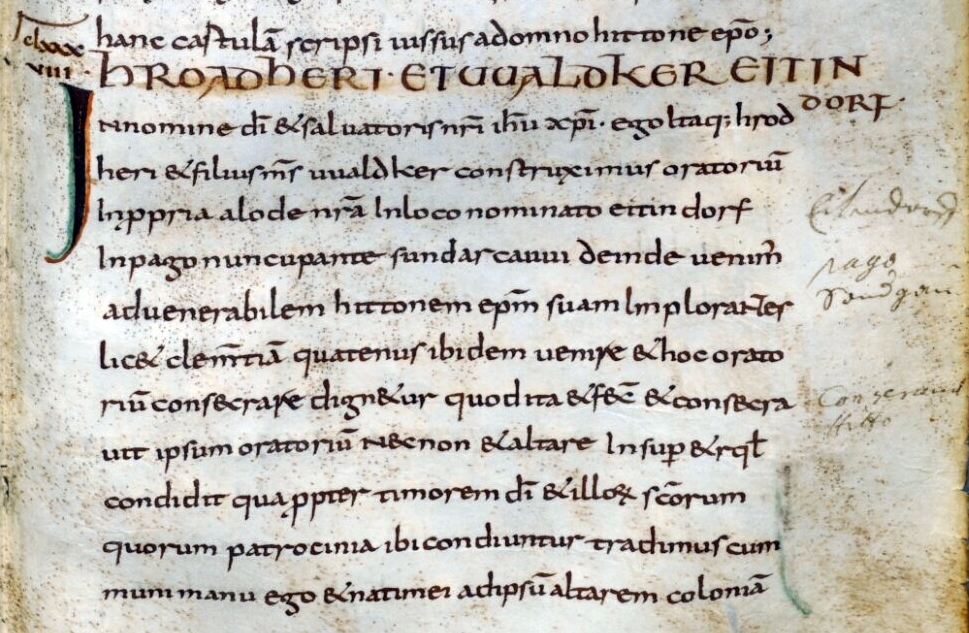 hanc castulā scripsi iussus a domno hittone ep̄o;
clxxx
viii · hROADhERI · ET UUALDKER EITIN
DORF ·
IN nomine dī & saluatoris nr̄i ih̄u xp̄i · ego Itaq; hrod
heri & filius m̄s uualdker construximus oratoriū
In ꝓpria alode nr̄a In loco nominato eitindorf
Eitindorf
In pago nuncupante sundarcauui deinde uenim̄
pago
ad uenerabilem hittonem ep̄m suam Implorantes
Sondgau
lic& clem̄tiā quatenus ibidem uenire & hoc orato
riū consecrare dign&ur quod ita & fec̄ & consecra
uit ipsum oratoriū nec non & altare Insup̄ & rql̄
condidit quapp̱ter timorem dī & illoꝝ sc̄orum
quorum patrocinia ibi condiuntur tradimus cum
muni manu ego & nati mei ad ipsū altarem coloniā